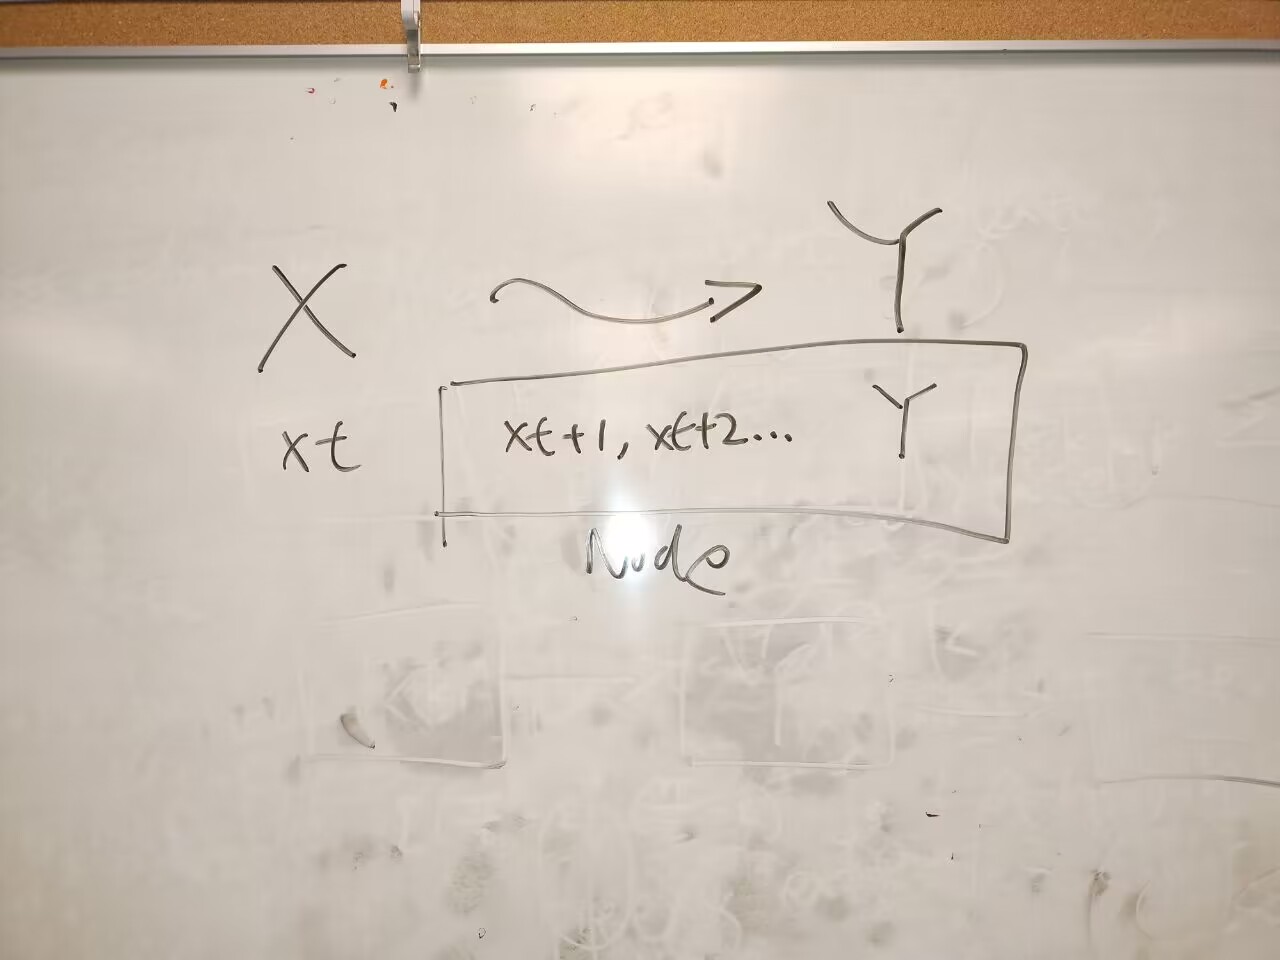 X Y
xt xt+1, xt+2... Y
Node